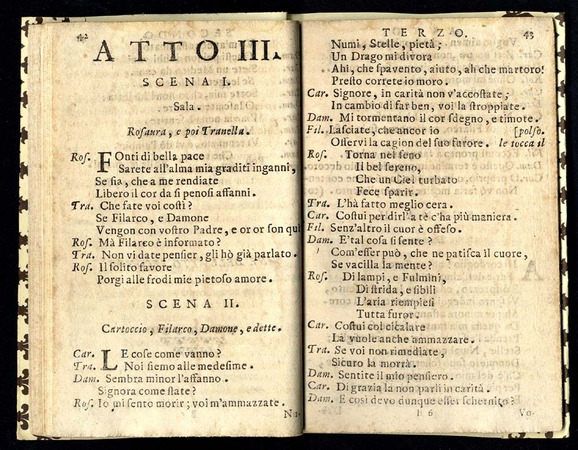 ATTO III.
SCENA I.
Sala.
Rosaura, e poi Tranella.
Ros. FOnti di bella pace
Sarete all'alma mia graditi inganni,
Se fia, che a me rendiate
Libero il cor da sì penosi affanni.
Tra. Che fate voi costì?
Se Filarco, e Damone
Vengon con vostro Padre, e or or son quì
Ros. Mà Filarco è informato?
Tra. Non vi date pensier, gli hò già parlato.
Ros. Il solito favore
Porgi alle frodi mie pietoso amore.
SCENA II.
Cartoccio, Filarco, Damone, e dette.
Car. LE cose come vanno?
Tra. Noi siemo alle medesime.
Dam. Sembra minor l'affanno.
Signora come state?
Ros. Io mi sento morir; voi m'ammazzate.
Nu-
TERZO. 43
Numi, Stelle, pietà;
Un Drago mi divora
Ahi, che spavento, aiuto, ah che martoro!
Presto correte io moro.
Car. Signore, in carità non v'accostate;
In cambio di far ben, voi la stroppiate.
Dam. Mi tormentano il cor sdegno, e timore.
Fil. Lasciate, che ancor io [polso.
Osservi la cagion del suo furore. le tocca il
Ros. Torna nel seno
Il bel sereno,
Che un Ciel turbato
Fece sparir.
Tra. L'hà fatto meglio cera.
Car. Costui per dirl'a tè c'ha più maniera.
Fil. Senz'altro il cuor è offeso.
Dam. E' tal cosa si sente?
Com'esser può, che ne patisca il cuore,
Se vacilla la mente?
Ros. Di lampi, e Fulmini,
Di strida, e sibili
L'aria riempiesi
Tutta furor.
Car. Costui col cicalare
La vuole anche ammazzare.
Tra. Se voi non rimediate,
Sicuro la morrà.
Dam. Sentite il mio pensiero.
Car. Di grazia la non parli in carità.
Dam. E così devo dunque esser schernito?
B 6 Vo-